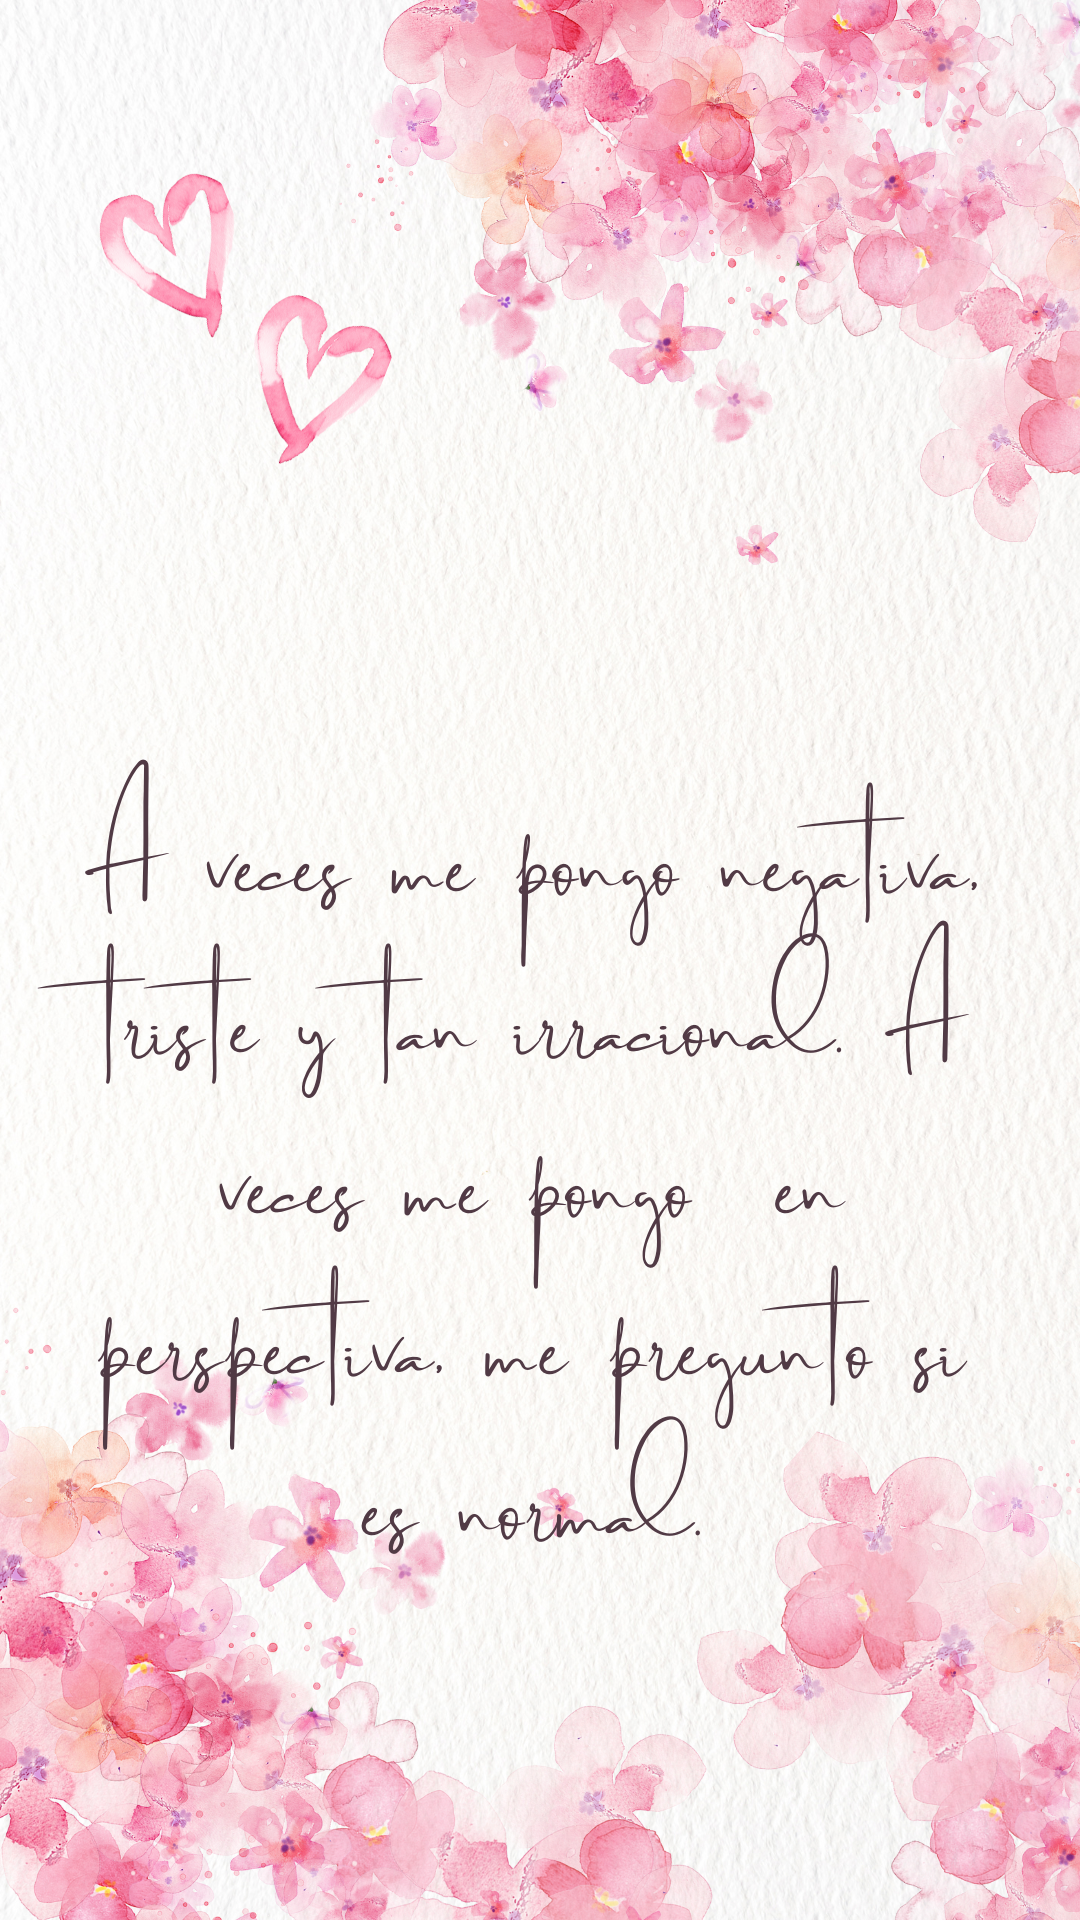 A veces me pongo negativa,
triste y tan irracional. A
veces me pongo en
perspectiva, me pregunto si
es normal.